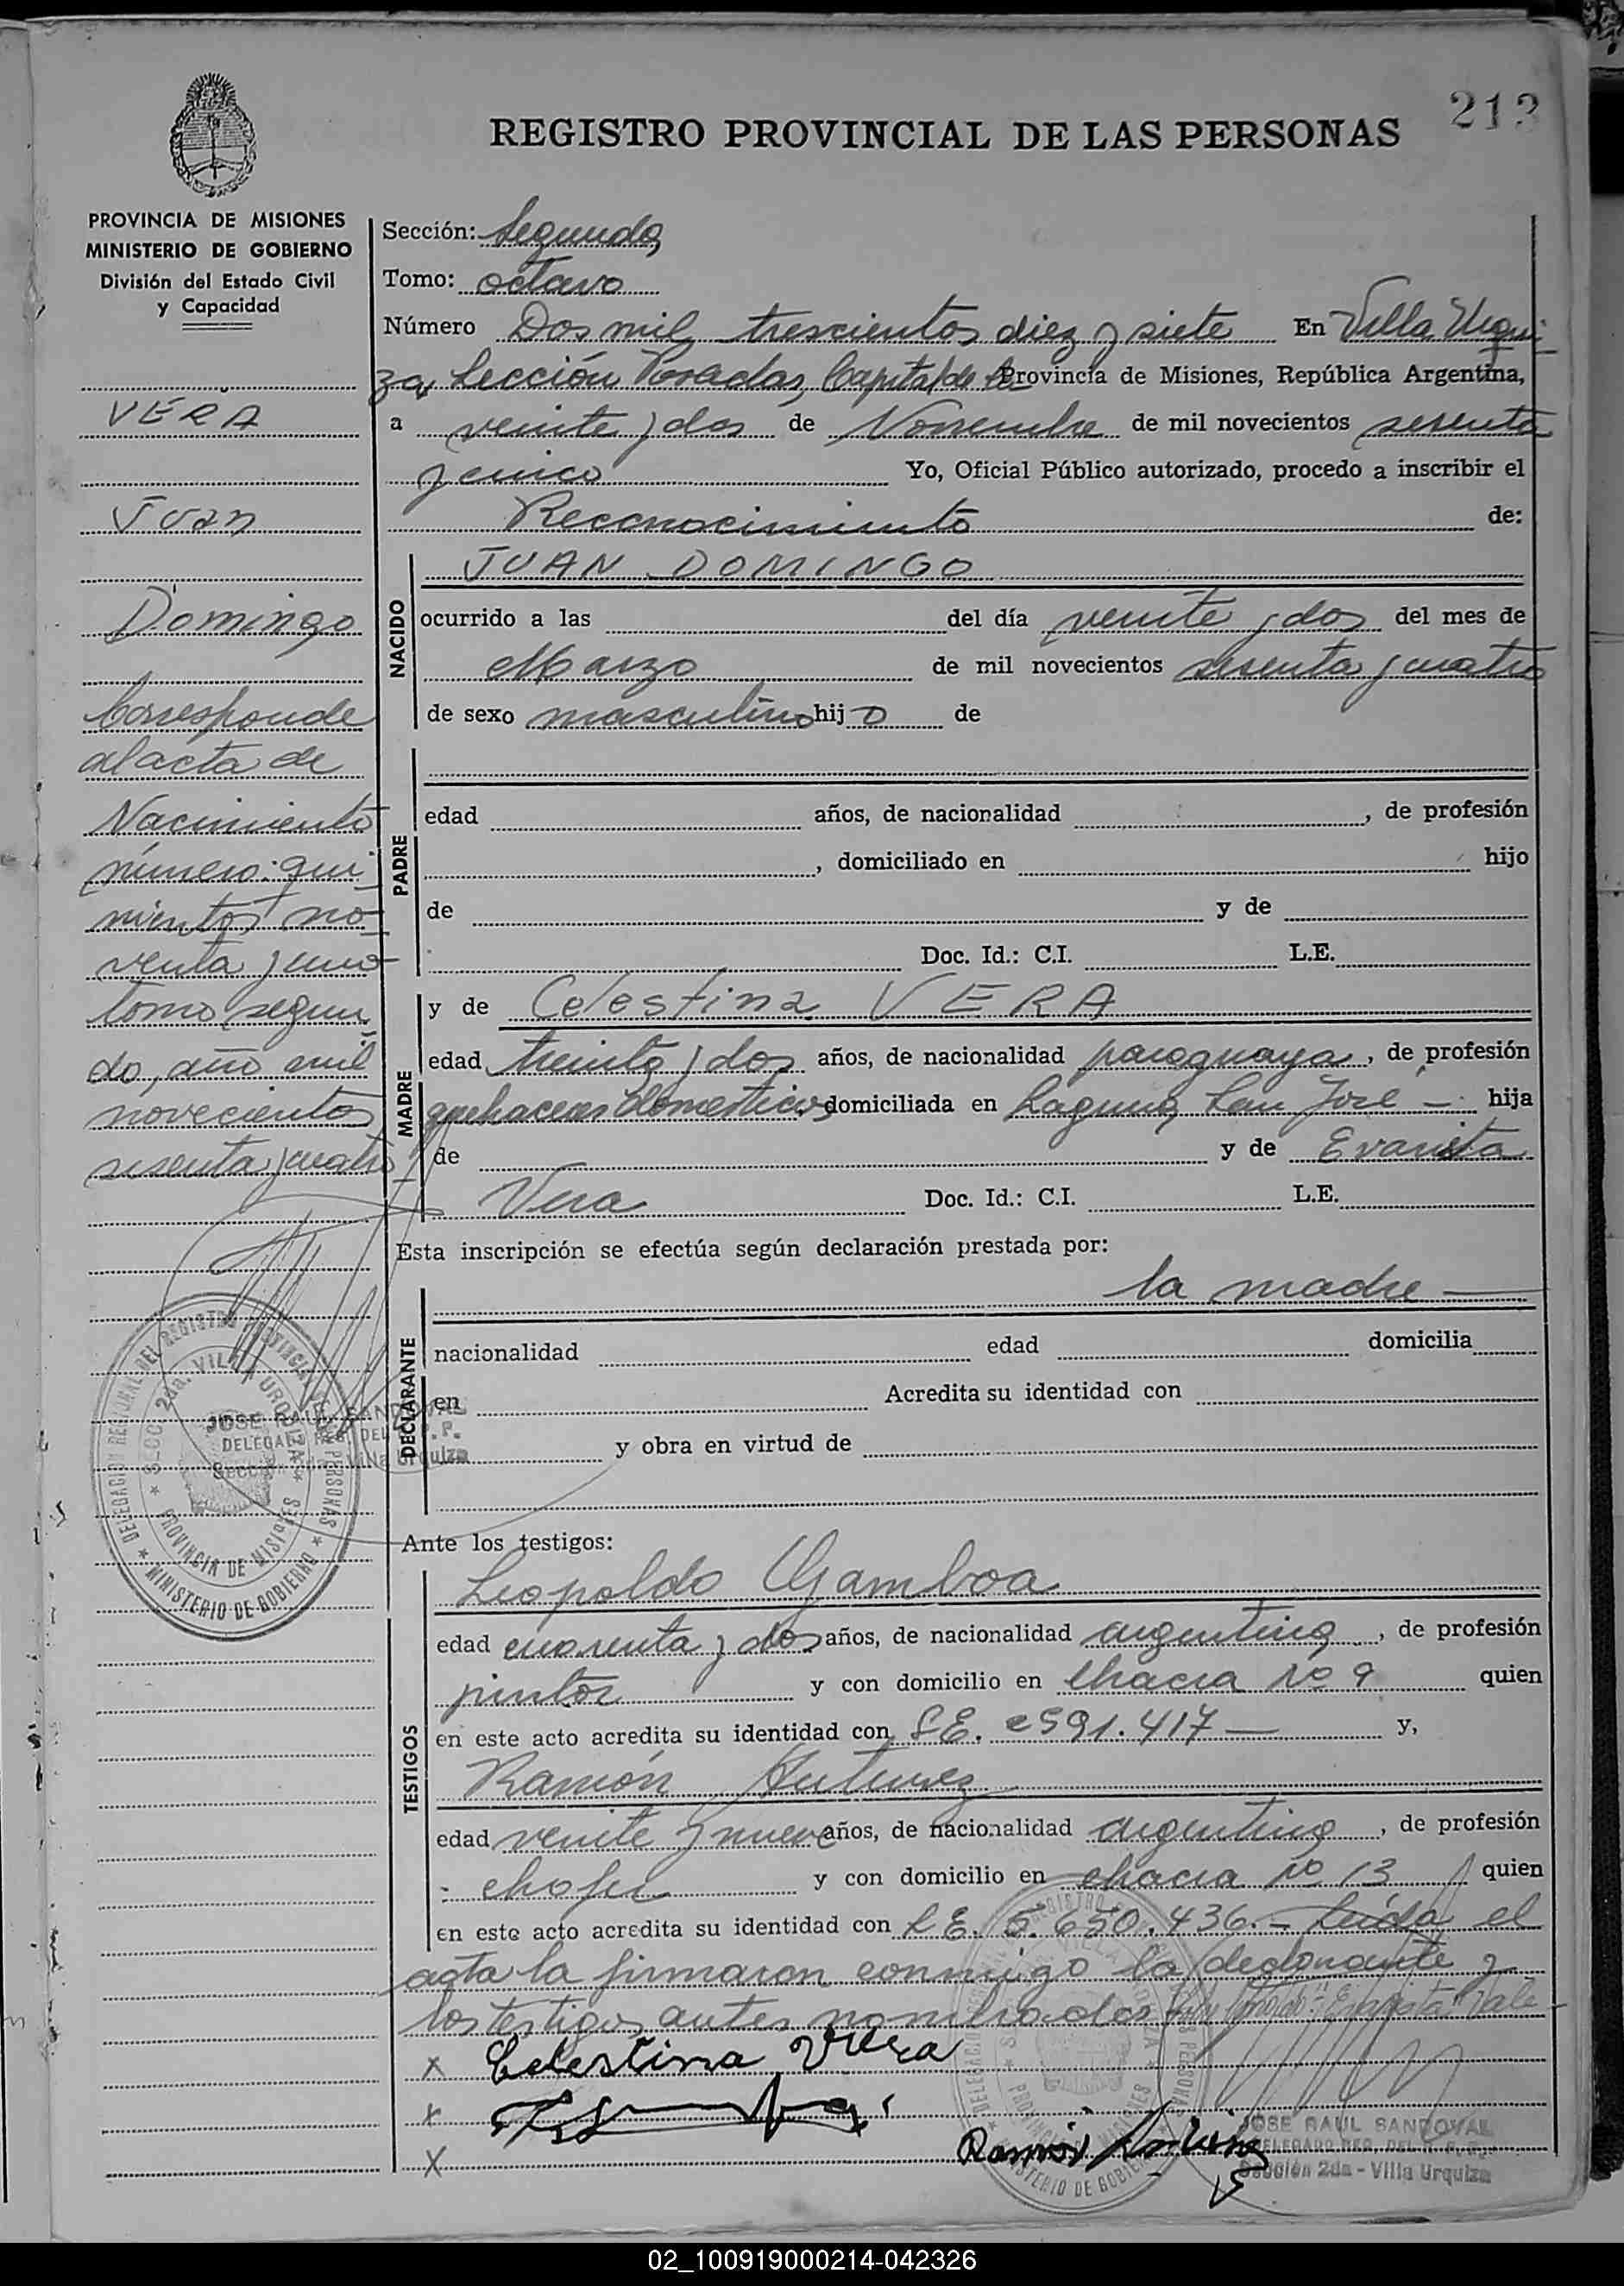 213
REGISTRO PROVINCIAL DE LAS PERSONAS
PROVINCIA DE MISIONES
MINISTERIO DE GOBIERNO
División del Estado Civil
y Capacidad
VERA
Juan
Domingo
Corresponde
al acta de
Nacimiento
número: qui-
nientos no-
venta y uno
tomo segun-
do, año mil
novecientos
sesenta y cuatro
Sección: Segunda
Tomo: octavo
Número Dos mil trescientos diez y siete En Villa Urqui-
za, Sección Posadas, Capital de la Provincia de Misiones, República Argentina,
a veinte y dos de Noviembre de mil novecientos sesenta
y cinco Yo, Oficial Público autorizado, procedo a inscribir el
Reconocimiento de:
NACIDO
JUAN DOMINGO
ocurrido a las del día veinte y dos del mes de
Marzo de mil novecientos sesenta y cuatro
de sexo masculino hijo de
PADRE
edad años, de nacionalidad , de profesión
, domiciliado en hijo
de y de
Doc. Id.: C.I. L.E.
MADRE
y de Celestina VERA
edad treinta y dos años, de nacionalidad paraguaya, de profesión
quehaceres domesticos domiciliada en Laguna San José - hija
de y de Evarista
Vera Doc. Id.: C.I. L.E.
Esta inscripción se efectúa según declaración prestada por:
la madre
DECLARANTE
nacionalidad edad domicilia
en Acredita su identidad con
y obra en virtud de
DELEGACION REGIONAL DEL REGISTRO PROVINCIAL DE LAS PERSONAS
SECC. 2da. VILLA URQUIZA
PROVINCIA DE MISIONES
MINISTERIO DE GOBIERNO
JOSE RAUL SANDOVAL
DELEGADO REG. DEL R. P. P.
Sección 2da - Villa Urquiza
Ante los testigos:
TESTIGOS
Leopoldo Gamboa
edad cuarenta y dos años, de nacionalidad argentina, de profesión
pintor y con domicilio en chacra No 9 quien
en este acto acredita su identidad con L.E. 2591.417 y,
Ramón
edad veinte y nueve años, de nacionalidad argentina, de profesión
chofer y con domicilio en chacra no 13 quien
en este acto acredita su identidad con L.E. 5.650.436.- Leída el
acta la firmaron conmigo la declarante y
los testigos antes nombrados "Evarista" Vale
x Celestina Vera
x
x Ramón
JOSE RAUL SANDOVAL
DELEGADO REG. DEL R. P. P.
Sección 2da - Villa Urquiza
02_100919000214-042326